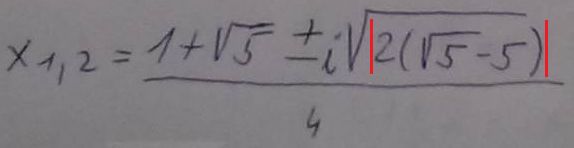 x₁,₂ = (1+√5 ± i√|2(√5-5)|)/4